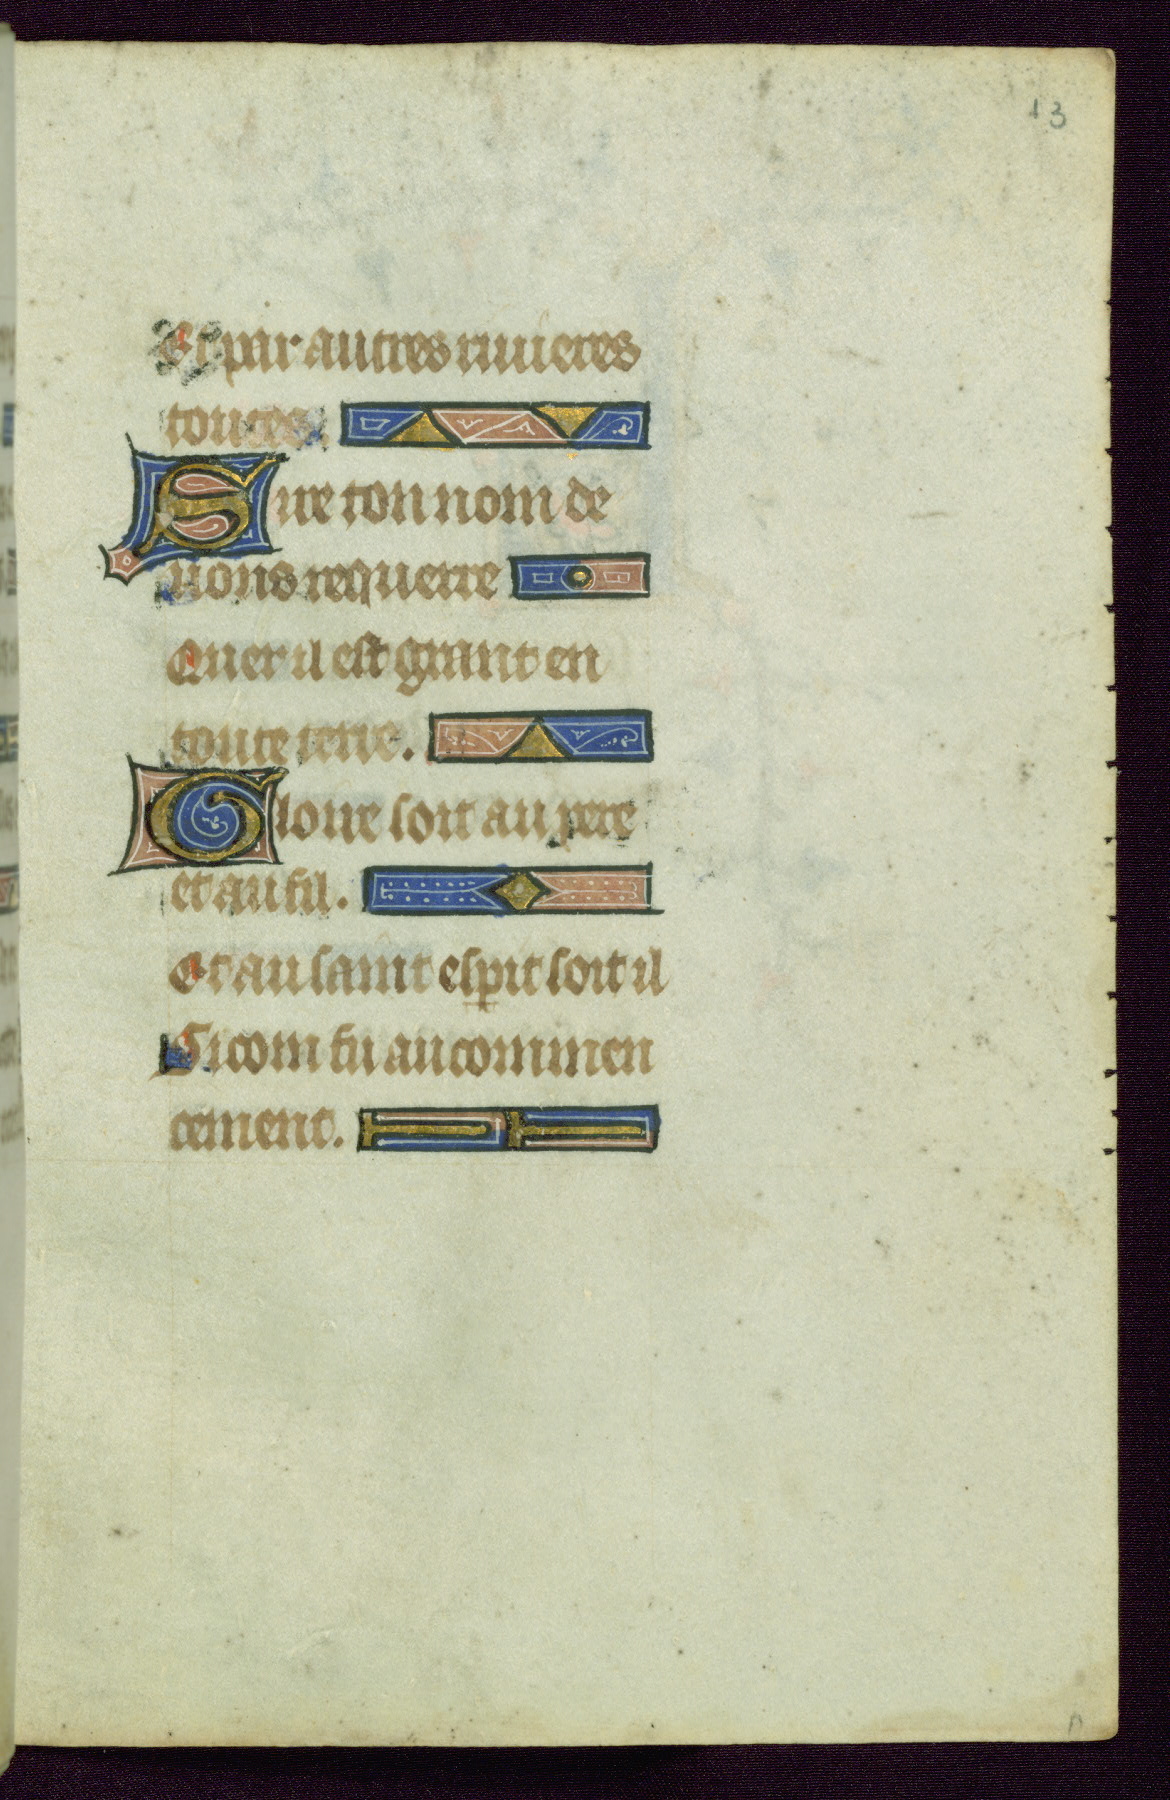 13
Et par autres riuieres
toutes.
Sire ton nom de
uons requerre
Quer il est grant en
toute terre.
Gloire soit au pere
et au fil.
Et au saint esꝑit soit il
Si com fu au commen
cement.